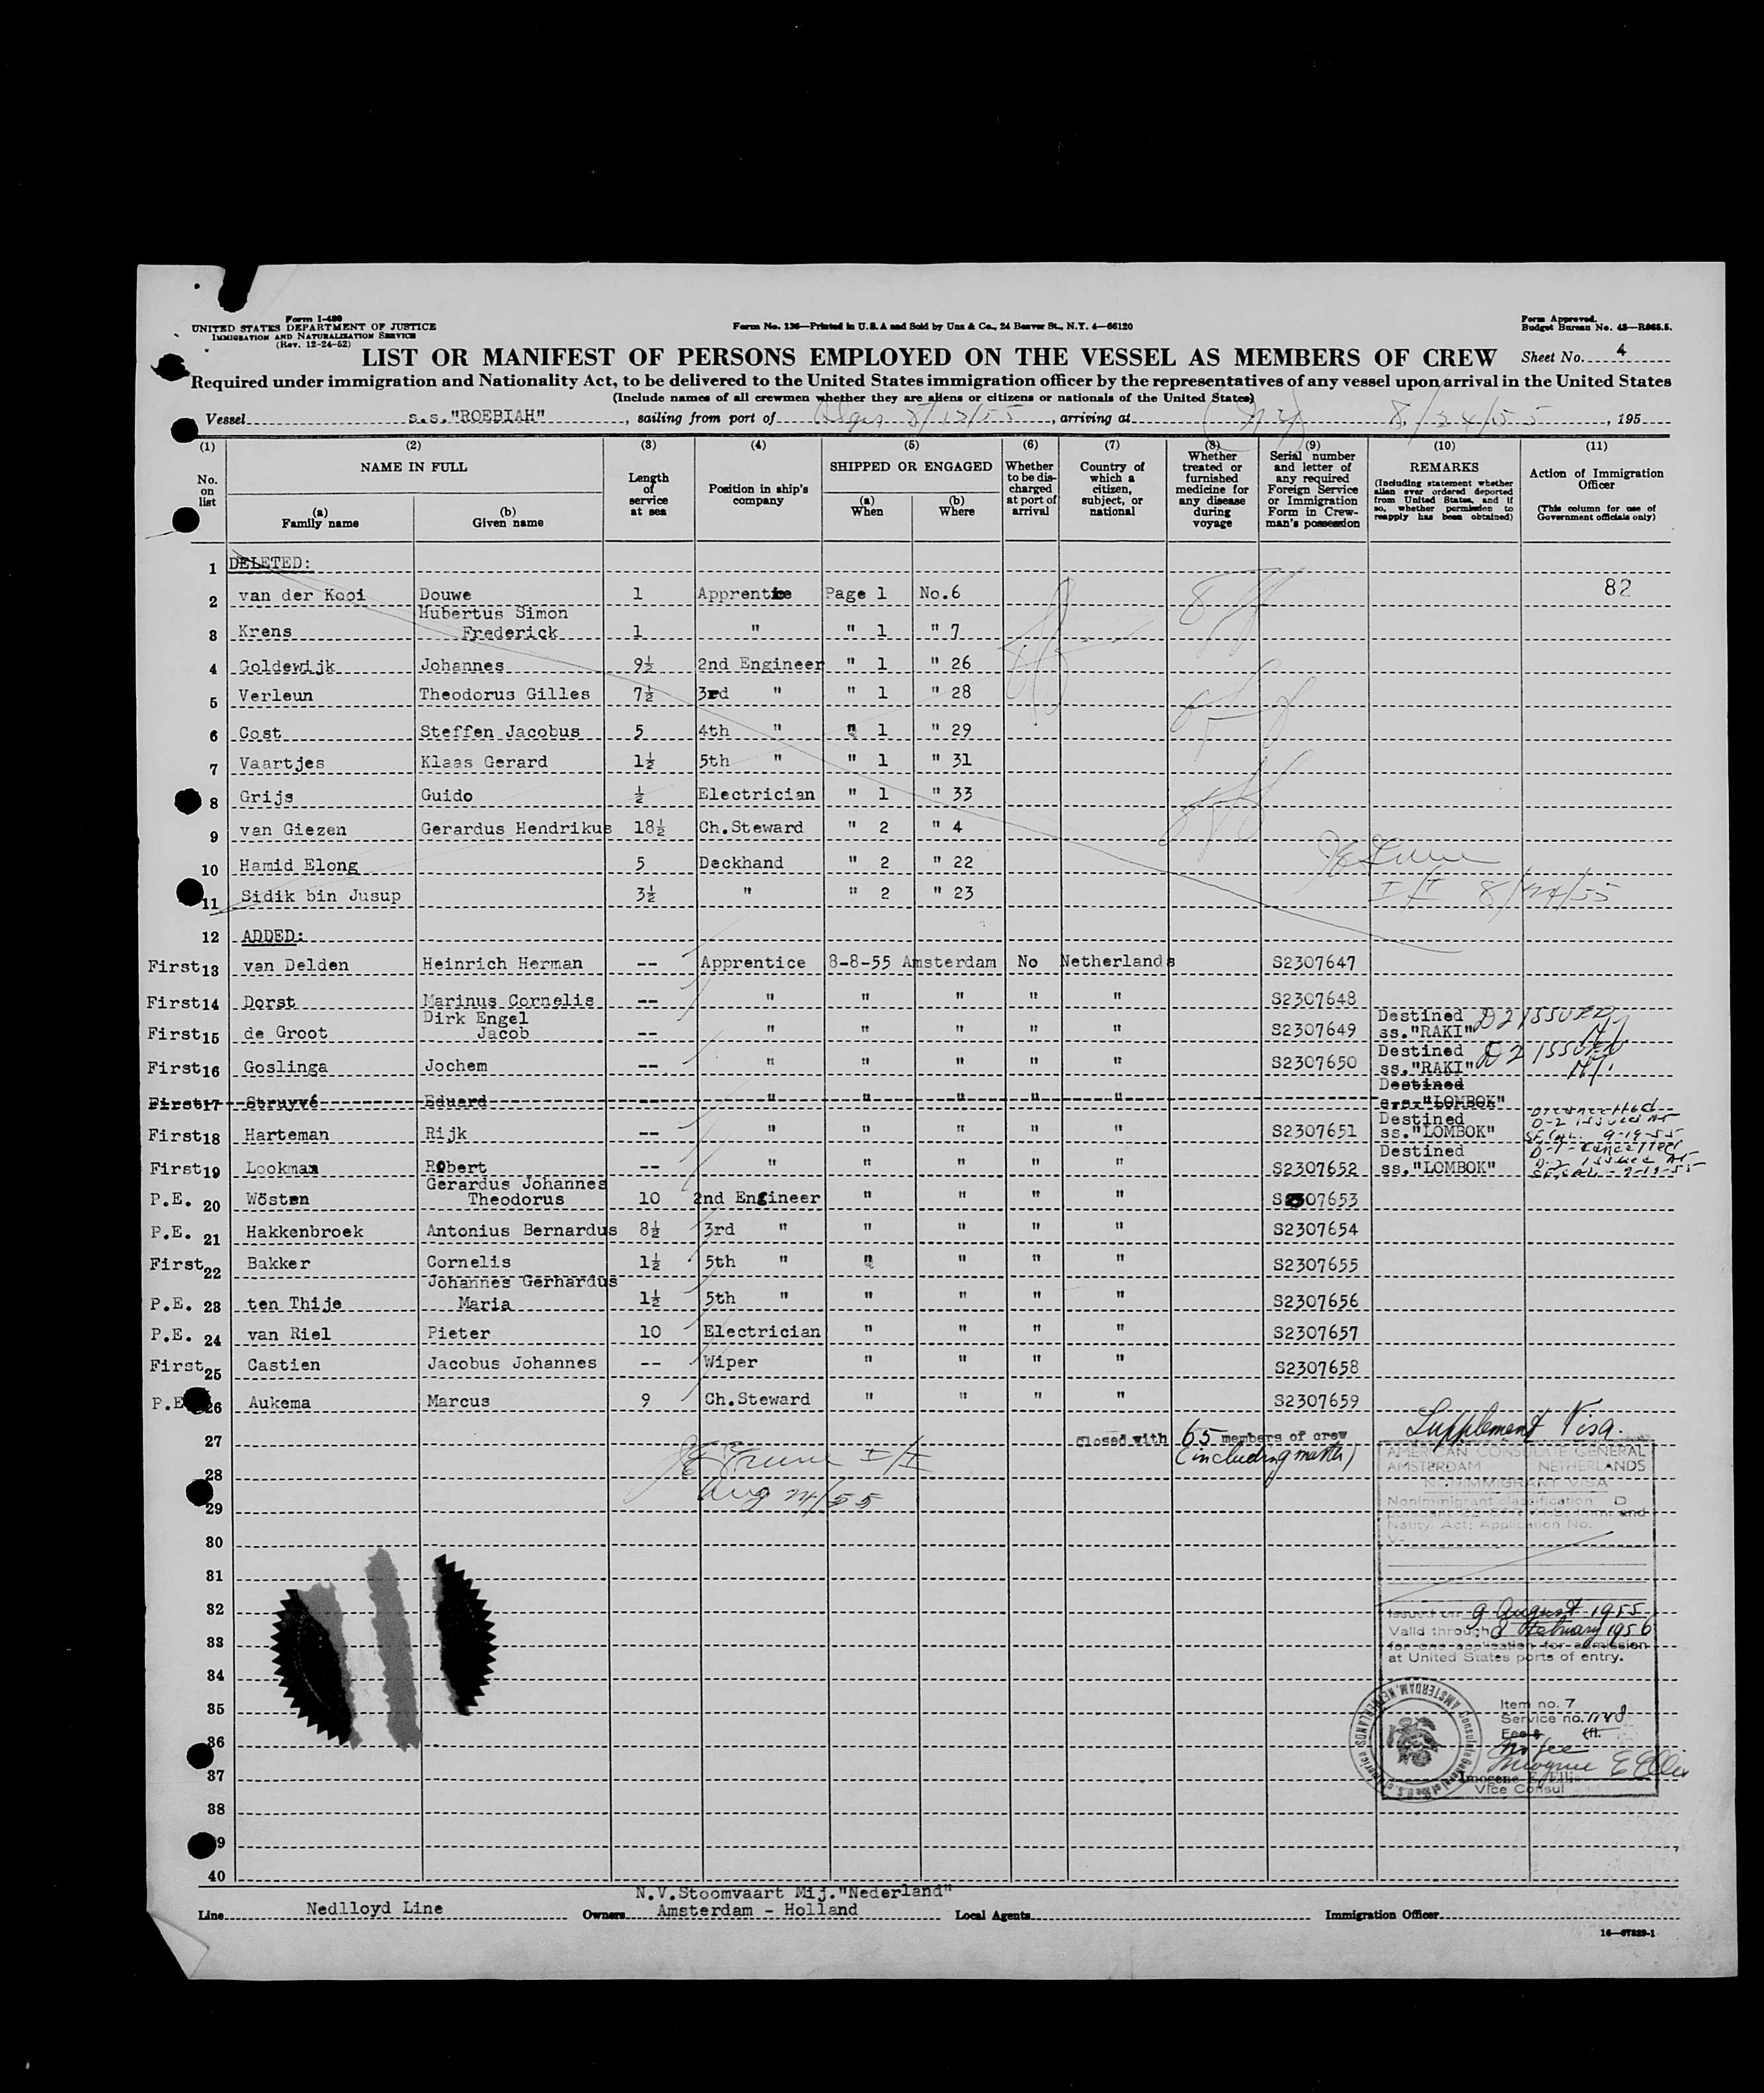 Form I-480
UNITED STATES DEPARTMENT OF JUSTICE
IMMIGRATION AND NATURALIZATION SERVICE
(Rev. 12-24-52)
Form No. 136—Printed in U.S.A and Sold by Unz & Co., 24 Beaver St., N.Y. 4—66120
Form Approved.
Budget Bureau No. 43—R065.5.
LIST OR MANIFEST OF PERSONS EMPLOYED ON THE VESSEL AS MEMBERS OF CREW
Sheet No. 4
Required under immigration and Nationality Act, to be delivered to the United States immigration officer by the representatives of any vessel upon arrival in the United States
(Include names of all crewmen whether they are aliens or citizens or nationals of the United States)
Vessel s.s."ROEBIAH", sailing from port of 8/12/55, arriving at (NY) 8/24/55, 195
(1) (2) (3) (4) (5) (6) (7) (8) (9) (10) (11)
No. on list
NAME IN FULL
(a) Family name
(b) Given name
Length of service at sea
Position in ship's company
SHIPPED OR ENGAGED
(a) When
(b) Where
Whether to be discharged at port of arrival
Country of which a citizen, subject, or national
Whether treated or furnished medicine for any disease during voyage
Serial number and letter of any required Foreign Service or Immigration Form in Crewman's possession
REMARKS
(Including statement whether alien ever ordered deported from United States, and if so, whether permission to reapply has been obtained)
Action of Immigration Officer
(This column for use of Government officials only)
1 DELETED:
2 van der Kooi Douwe 1 Apprentice Page 1 No.6 82
3 Krens Hubertus Simon Frederick 1 " " 1 " 7
4 Goldewijk Johannes 9½ 2nd Engineer " 1 " 26
5 Verleun Theodorus Gilles 7½ 3rd " " 1 " 28
6 Cost Steffen Jacobus 5 4th " " 1 " 29
7 Vaartjes Klaas Gerard 1½ 5th " " 1 " 31
8 Grijs Guido ½ Electrician " 1 " 33
9 van Giezen Gerardus Hendrikus 18½ Ch.Steward " 2 " 4
10 Hamid Elong 5 Deckhand " 2 " 22
11 Sidik bin Jusup 3½ " " 2 " 23
I/I 8/24/55
12 ADDED:
First 13 van Delden Heinrich Herman -- Apprentice 8-8-55 Amsterdam No Netherlands S2307647
First 14 Dorst Marinus Cornelis -- " " " " " S2307648
First 15 de Groot Dirk Engel Jacob -- " " " " " S2307649 Destined ss."RAKI" D2 ISSUED NY
First 16 Goslinga Jochem -- " " " " " S2307650 Destined ss."RAKI" D2 ISSUED NY
First 17 Struyvé Eduard -- " " " " " Destined s.s."LOMBOK"
First 18 Harteman Rijk -- " " " " " S2307651 Destined ss."LOMBOK" D-1 cancelled D-2 issued at SF Cal. 9-19-55
First 19 Lookman Robert -- " " " " " S2307652 Destined ss."LOMBOK" D-1-Cancelled D-2 issued at SF, Cal. -9-19-55
P.E. 20 Wösten Gerardus Johannes Theodorus 10 2nd Engineer " " " " S2307653
P.E. 21 Hakkenbroek Antonius Bernardus 8½ 3rd " " " " " S2307654
First 22 Bakker Cornelis 1½ 5th " " " " " S2307655
P.E. 23 ten Thije Johannes Gerhardus Maria 1½ 5th " " " " " S2307656
P.E. 24 van Riel Pieter 10 Electrician " " " " S2307657
First 25 Castien Jacobus Johannes -- Wiper " " " " S2307658
P.E. 26 Aukema Marcus 9 Ch.Steward " " " " S2307659
27
Closed with 65 members of crew
(including master)
Supplement Visa.
28
I/I
Aug 24/55
29
AMERICAN CONSULATE GENERAL
AMSTERDAM NETHERLANDS
NONIMMIGRANT VISA
Nonimmigrant classification D
Natlty. Act; Application No.
V-
30
31
32
33
34
35
36
37
38
39
40
Issued on 9 August 1955
Valid through 8 February 1956
for one application for admission
at United States ports of entry.
Item no. 7
Service no. 1148
Fee $ (fl.
No fee
Imogene E Ellis
Imogene E. Ellis
Vice Consul
Consulate General of the U.S. of America AMSTERDAM, NETHERLANDS
Line Nedlloyd Line
Owners N.V.Stoomvaart Mij."Nederland"
Amsterdam - Holland
Local Agents
Immigration Officer
16—67329-1